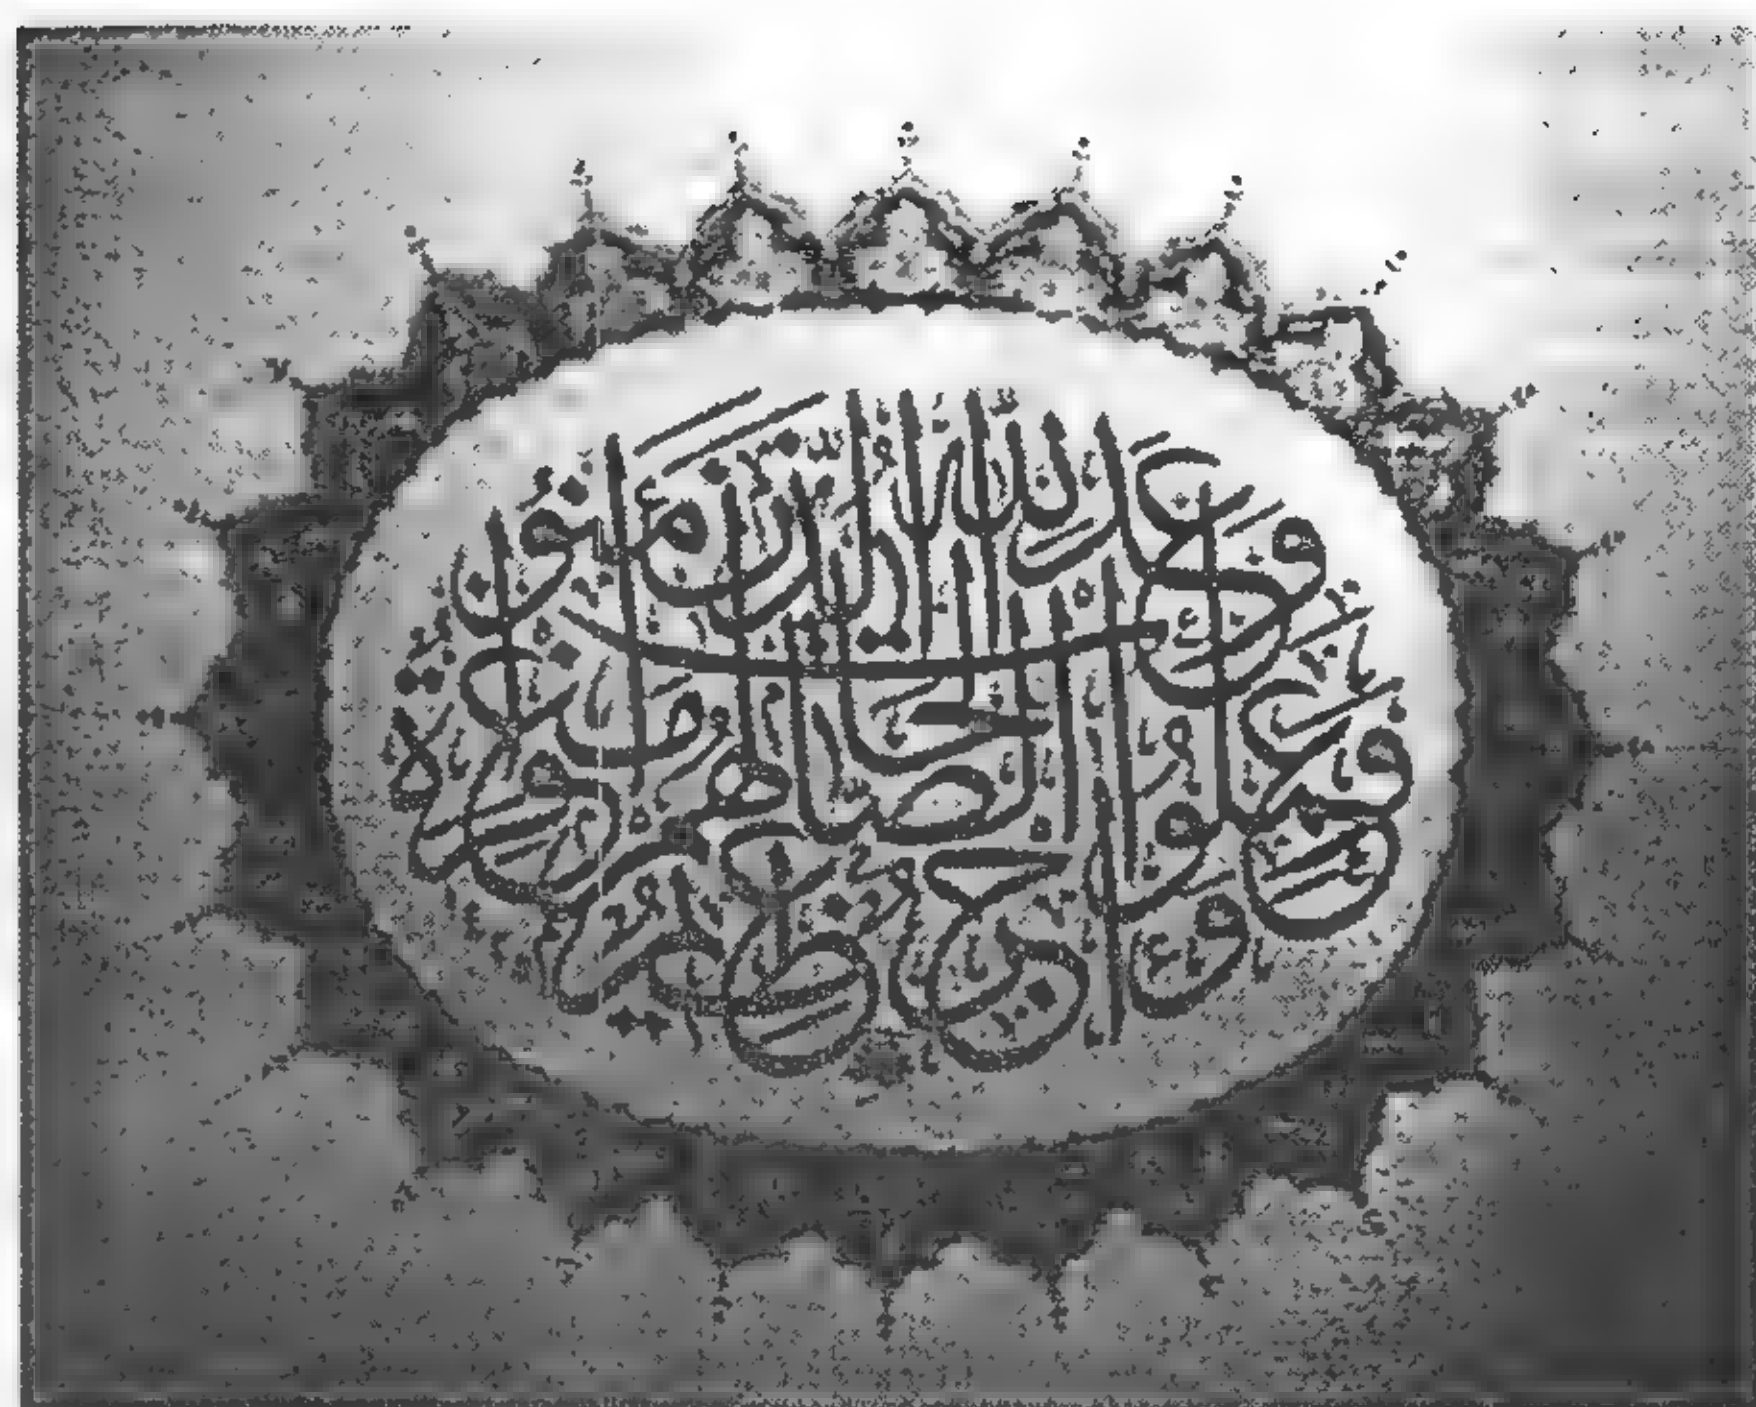 وعد الله الذين آمنوا
وعملوا الصالحات منهم مغفرة
وأجرا عظيما